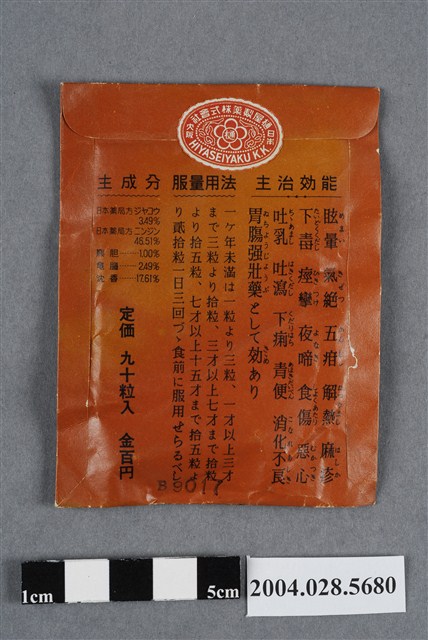 樋屋製薬株式會社
大阪 日本
HIYASEIYAKU K.K.
主治効能
眩暈 氣絶 五疳 解熱 麻疹
下毒 痙攣 夜啼 食傷 悪心
吐乳 吐瀉 下痢 青便 消化不良
胃腸强壯藥として効あり
服量用法
一ヶ年未滿は一粒より三粒、一才以上三才
まで三粒より拾粒、三才以上七才まで拾粒
より拾五粒、七才以上十五才まで拾五粒よ
り貳拾粒一日三回づゝ食前に服用せらるべし
主成分
日本薬局方ジャコウ
3.49%
日本薬局方ニンジン
46.51%
胆 1.00%
2.49%
沈香 17.61%
定価 九十粒入 金百円
B9017
1cm
5cm
2004.028.5680